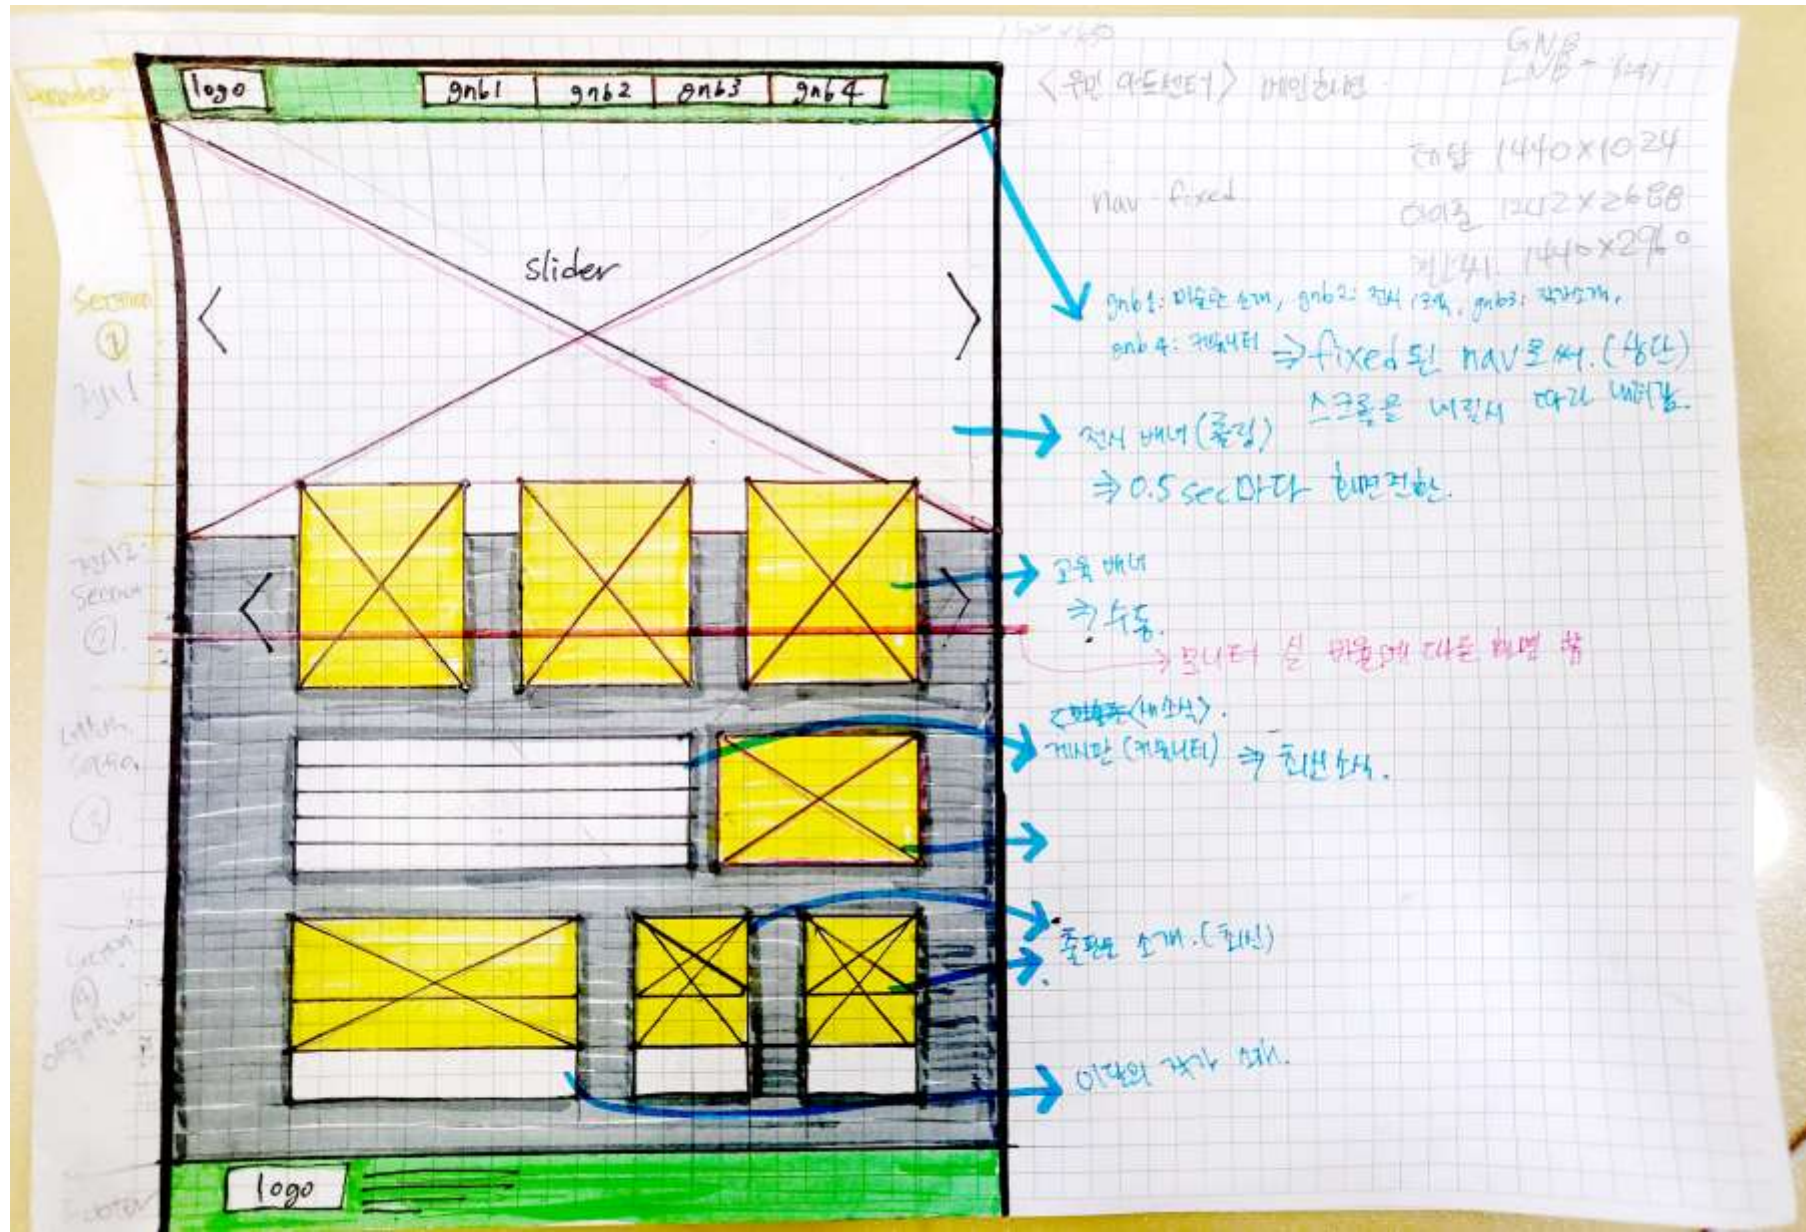 header
logo
gnb1 gnb2 gnb3 gnb4
<우민 아트센터> 메인화면
GNB
LNB -
1440×1024
nav - fixed
1242×2688
1440×2960
slider
Section
①
전시1
gnb1: 미술관 소개, gnb2: 전시, 교육, gnb3: 작가소개,
gnb4: 커뮤니티 ⇒ fixed 된 nav로써. (상단)
스크롤을 내릴시 따라 내려감.
전시 배너 (롤링)
⇒ 0.5 sec마다 화면전환.
Section
②
교육 배너
⇒ 수동.
→ 모니터 실 비율에 따른 화면
<새소식>.
게시판 (커뮤니티) ⇒ 최신소식.
③
출판물 소개. (최신)
④
이달의 작가 소개.
footer
logo